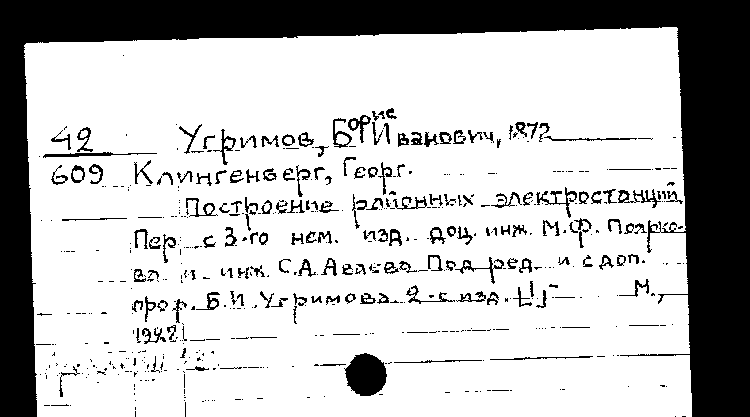 42 Угримов, Борис Иванович, 1872
609 Клингенберг, Георг.
Построение районных электростанций.
Пер с 3-го нем. изд. доц. инж. М.Ф. Поярко-
ва и инж. С.А. Аваева Под ред. и с доп.
проф. Б.И. Угримова. 2-е изд. М.,